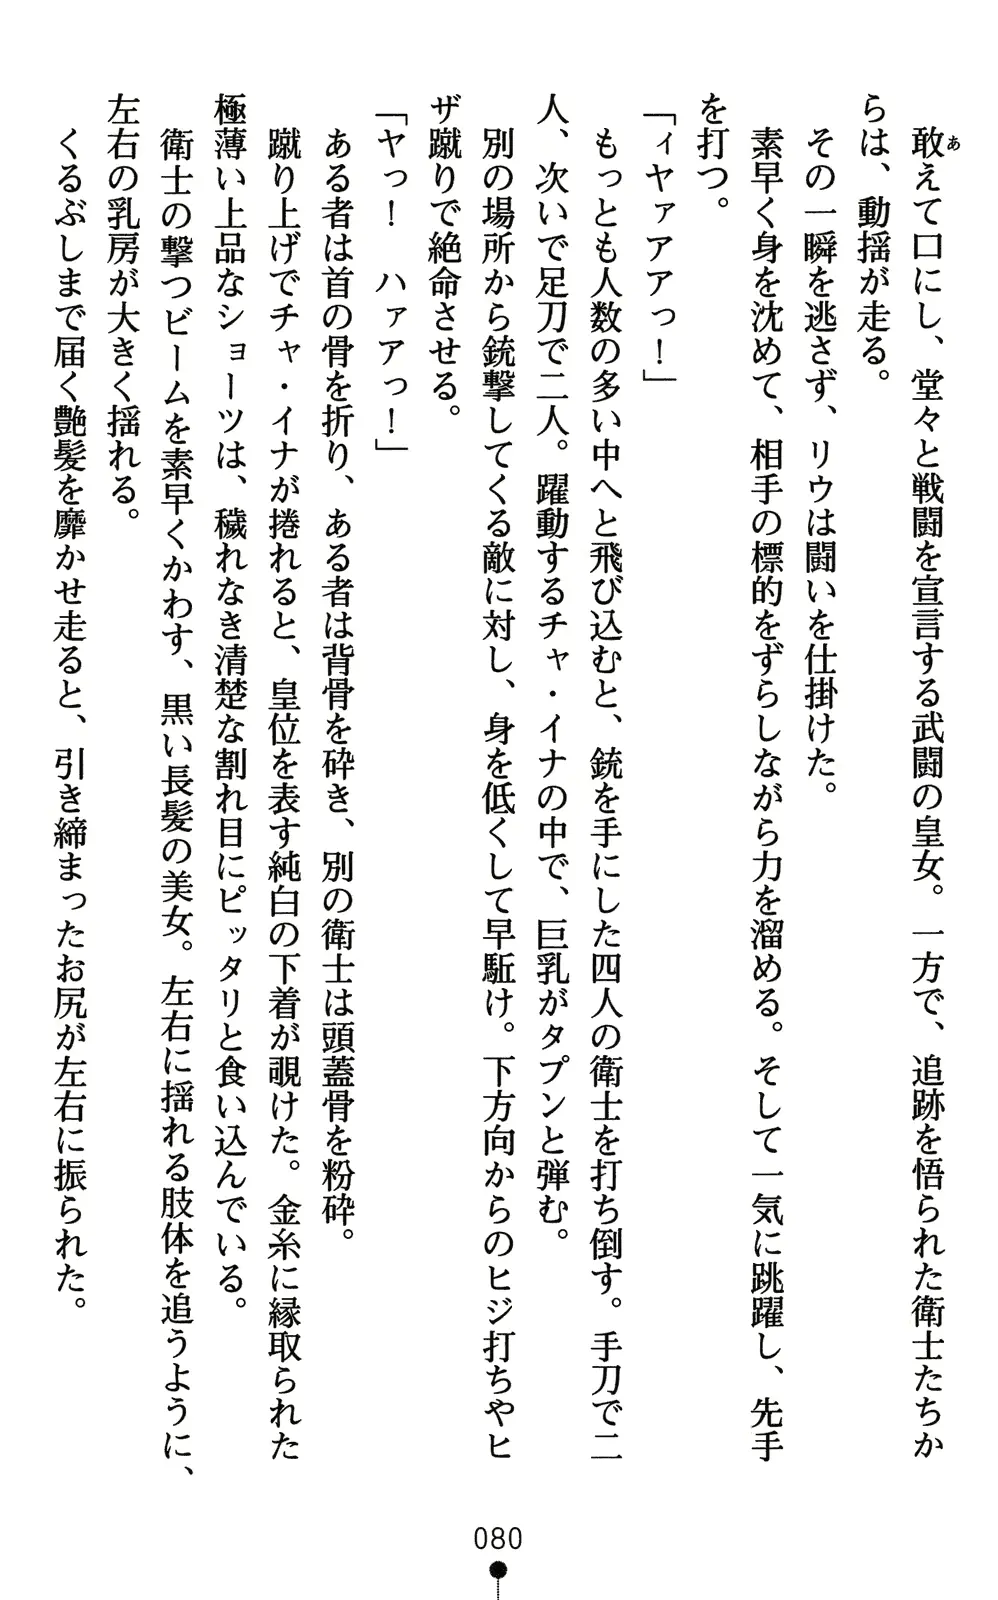 敢えて口にし、堂々と戦闘を宣言する武闘の皇女。一方で、追跡を悟られた衛士たちか
らは、動揺が走る。
その一瞬を逃さず、リウは闘いを仕掛けた。
素早く身を沈めて、相手の標的をずらしながら力を溜める。そして一気に跳躍し、先手
を打つ。
「ィヤァアアっ！」
もっとも人数の多い中へと飛び込むと、銃を手にした四人の衛士を打ち倒す。手刀で二
人、次いで足刀で二人。躍動するチャ・イナの中で、巨乳がタプンと弾む。
別の場所から銃撃してくる敵に対し、身を低くして早駈け。下方向からのヒジ打ちやヒ
ザ蹴りで絶命させる。
「ヤっ！　ハァアっ！」
ある者は首の骨を折り、ある者は背骨を砕き、別の衛士は頭蓋骨を粉砕。
蹴り上げでチャ・イナが捲れると、皇位を表す純白の下着が覗けた。金糸に縁取られた
極薄い上品なショーツは、穢れなき清楚な割れ目にピッタリと食い込んでいる。
衛士の撃つビームを素早くかわす、黒い長髪の美女。左右に揺れる肢体を追うように、
左右の乳房が大きく揺れる。
くるぶしまで届く艶髪を靡かせ走ると、引き締まったお尻が左右に振られた。
あ
080